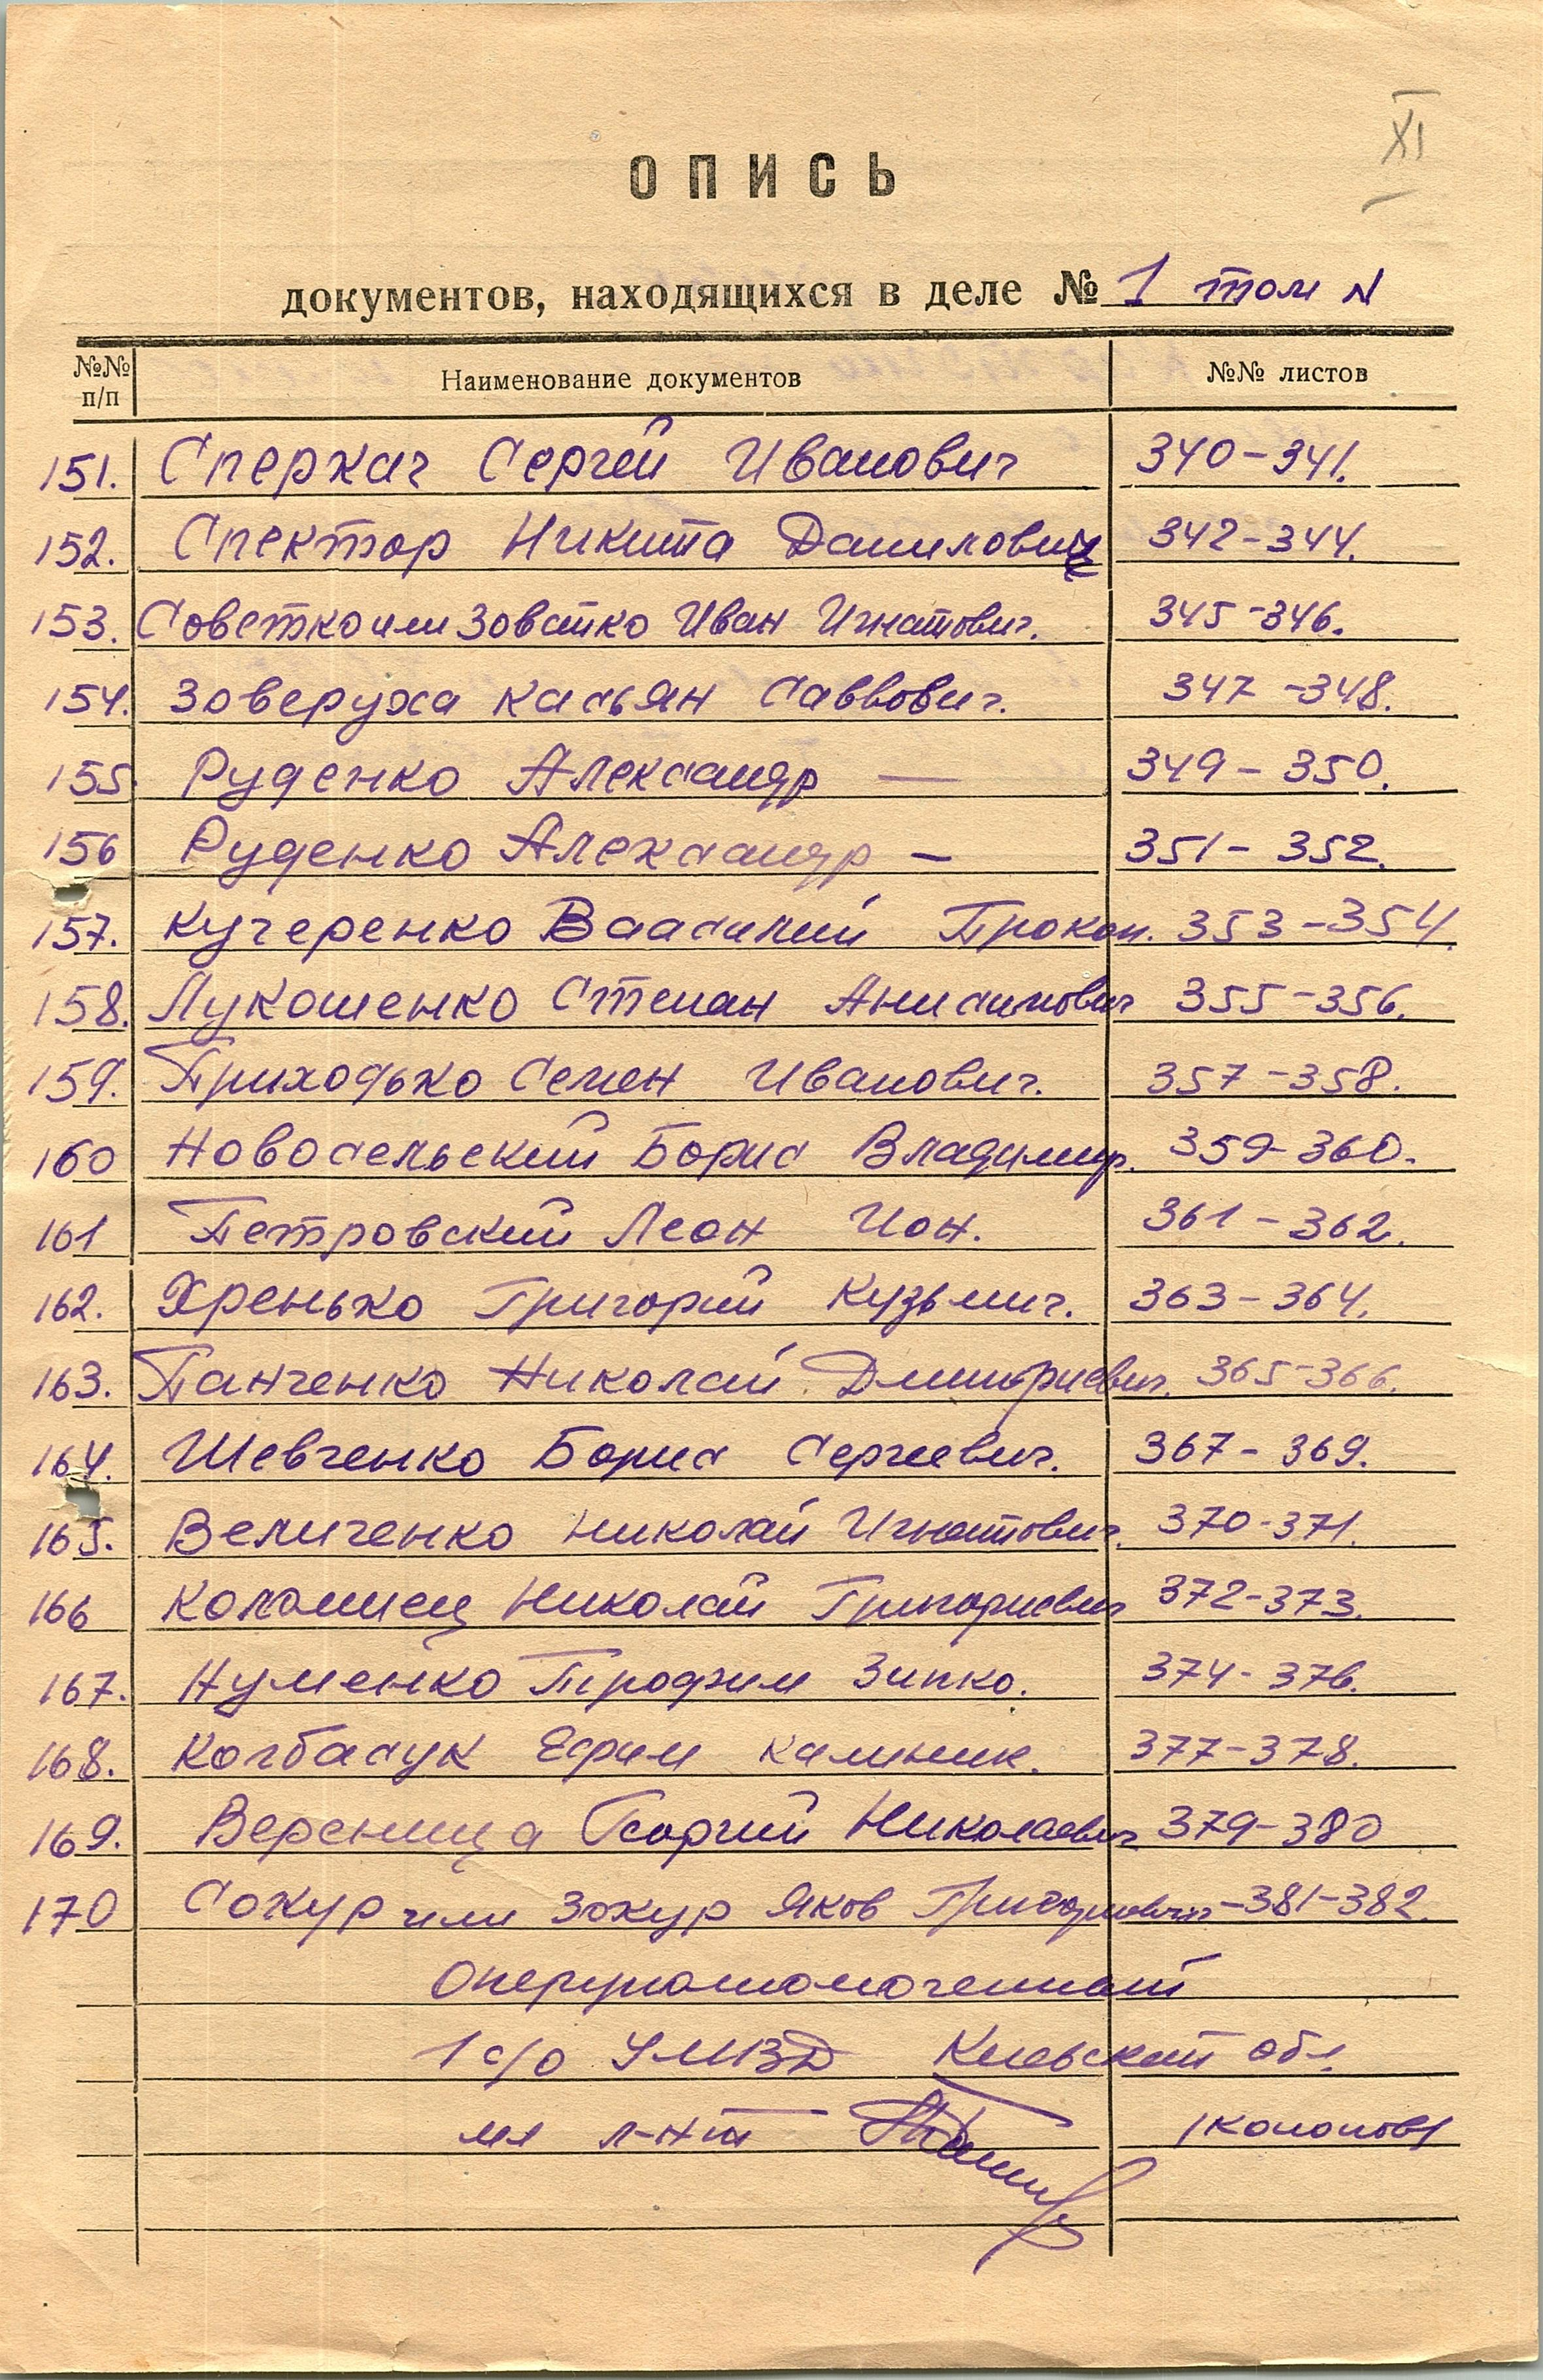 XI
ОПИСЬ
документов, находящихся в деле № 1 том N
№№ п/п Наименование документов №№ листов
151. Сперкач Сергей Иванович 340-341.
152. Спектор Никита Данилович 342-344.
153. Советко или Зоватко Иван Игнатович. 345-346.
154. Заверуха Касьян Саввович. 347-348.
155 Руденко Александр — 349-350.
156 Руденко Александр — 351-352.
157. Кучеренко Ваасилий Прокоп. 353-354.
158. Лукошенко Степан Анисимович 355-356.
159. Приходько Семен Иванович. 357-358.
160 Новосельский Борис Владимир. 359-360.
161 Петровский Леон Ион. 361-362.
162. Хренько Григорий Кузьмич. 363-364.
163. Панченко Николай Дмитриевич. 365-366.
164. Шевченко Борис Сергеевич. 367-369.
165. Величенко Николай Игнатович. 370-371.
166 Коломиец Николай Григориевич 372-373.
167. Нуменко Трофим Зипко. 374-376.
168. Колбасук Ефим Калиник. 377-378.
169. Вереница Георгий Николаевич 379-380
170 Сокур или Зокур Яков Григориевич-381-382.
Оперуполномоченный
1 с/о УМВД Киевской обл.
мл л-нт /Кононов/